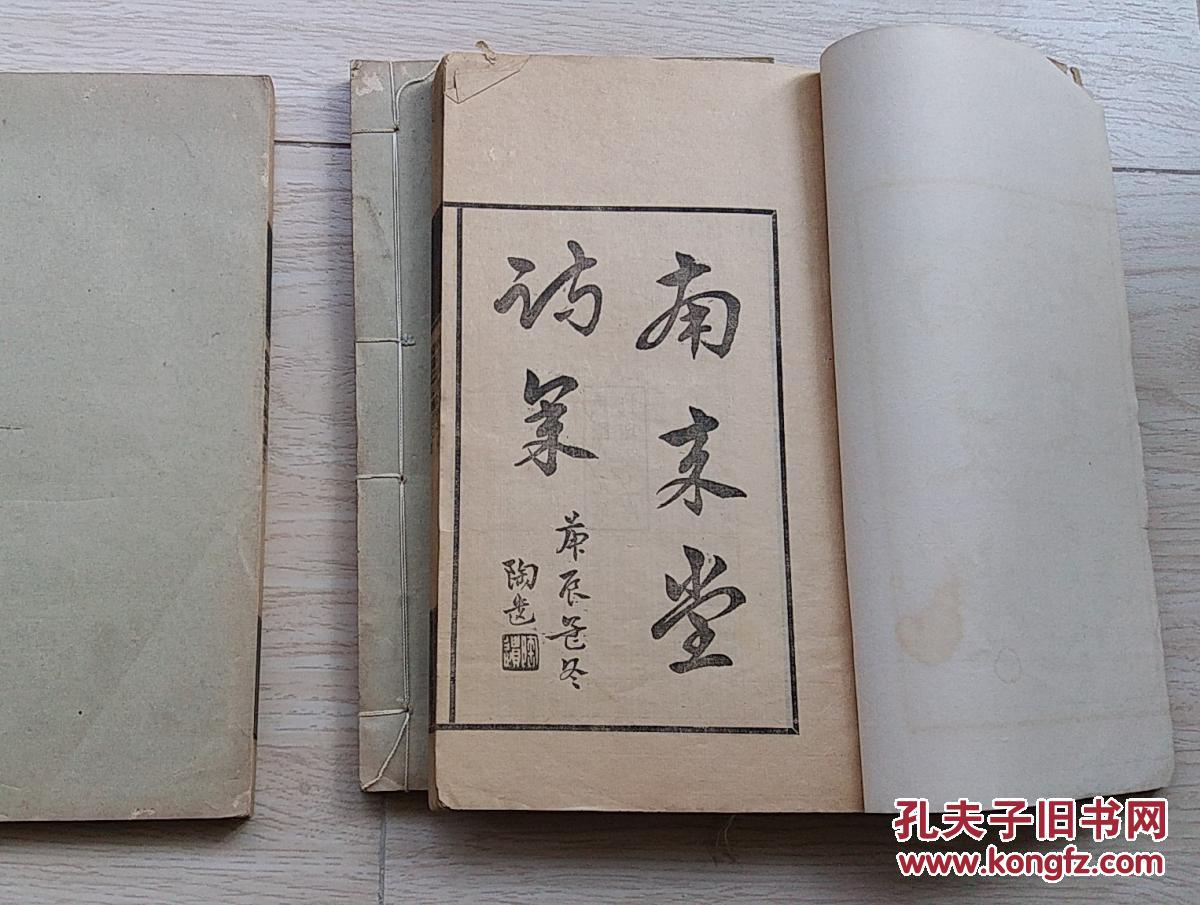 南来堂
诗集
庚辰孟冬
陶遗
陶遺
孔夫子旧书网
www.kongfz.com